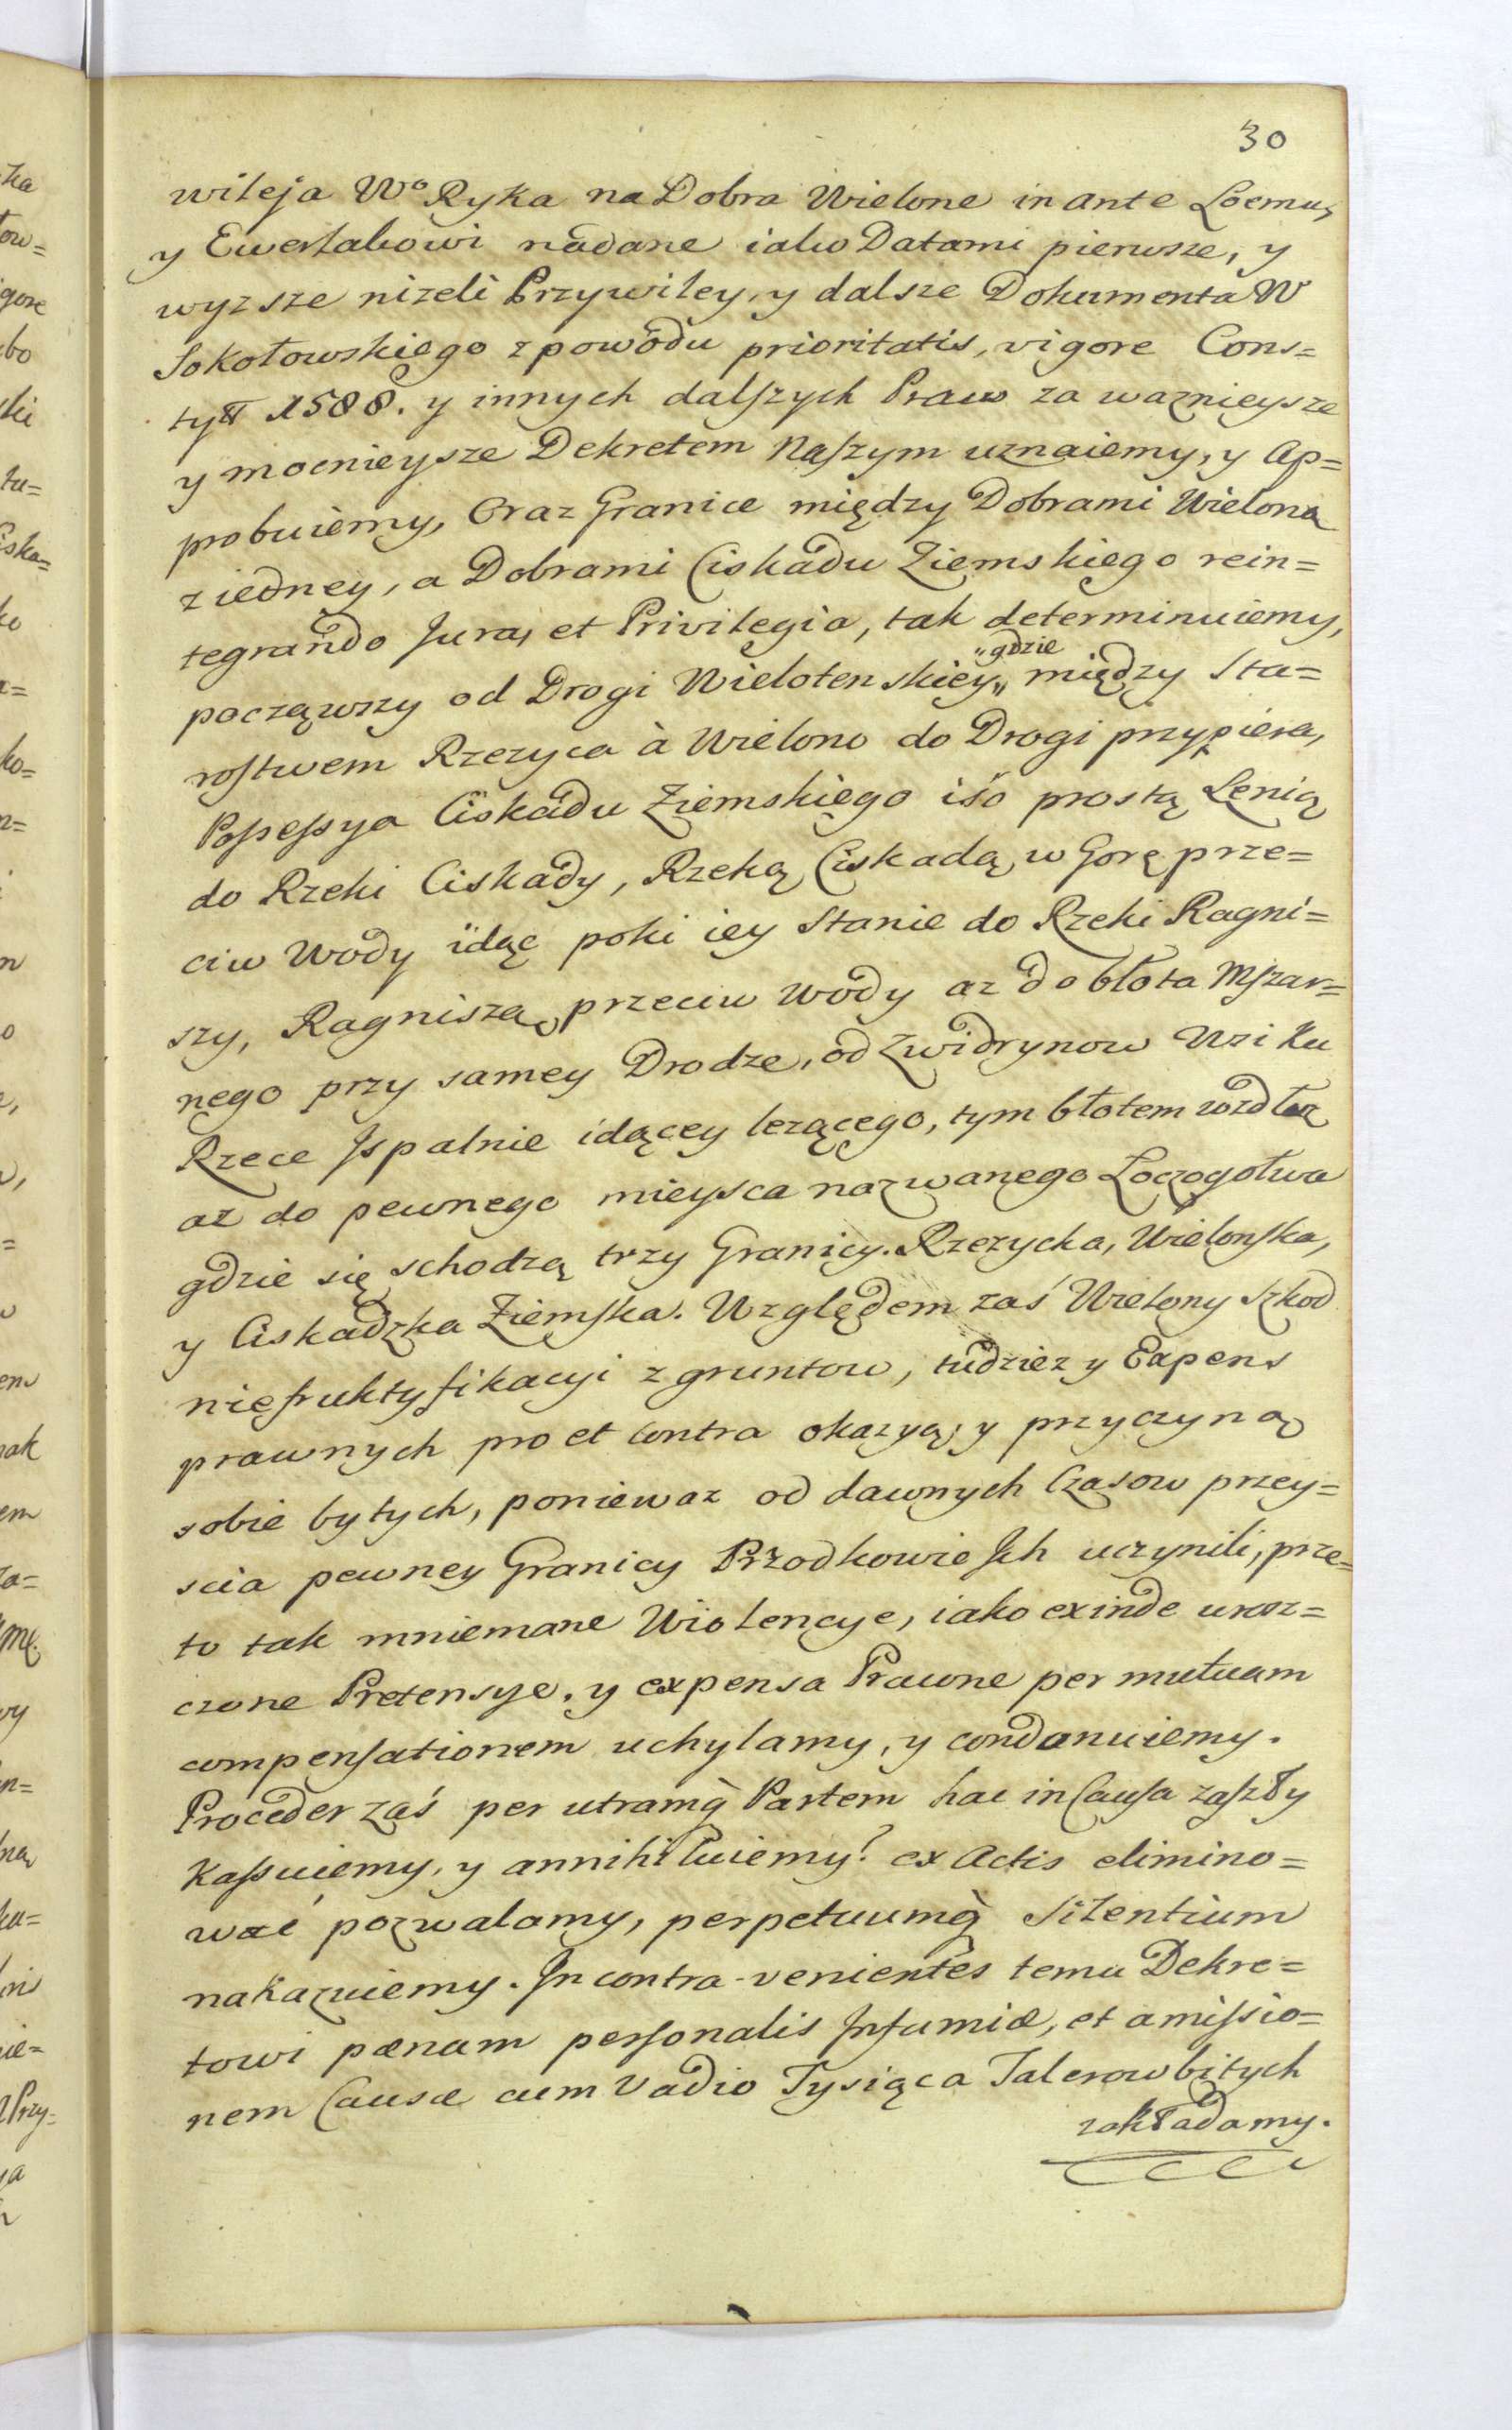 30
wileja Wo Ryka na Dobra Wielone in ante Loemu,
y Ewertakowi nadane iako Datami pierwsze, y
wyzsze nizeli Przywiley, y dalsze Dokumenta W
Sokołowskiego z powodu prioritatis, vigore Cons=
tyt 1588. y innych dalszych Praw za wazniejsze
y mocnieysze Dekretem Naszym uznaiemy, y Ap=
probuiemy, Oraz Granice między Dobrami Wieloną
z iedney, a Dobrami Ciskadu Ziemskiego rein=
tegrando Jura, et Privilegia, tak determinuiemy,
począwszy od Drogi Wielotenskiey „gdzie" między Sta=
rostwem Rzezyca à Wielono do Drogi przypiera,
Possessya Ciskadu Ziemskiego iśo prostą Lenią
do Rzeki Ciskady, Rzeką Ciskadą w Gorę prze=
ciw Wody idąc poki iey Stanie do Rzeki Ragni=
szy, Ragniszą przeciw Wody az do błota Mszar=
nego przy samey Drodze, od Zwidrynow Wsi ku
Rzece Ispalnie idącey lezącego, tym błotem wzdłuz
az do pewnego mieysca nazwanego Loczogotwa
gdzie się schodzą trzy Granicy. Rzezycka, Wielonska,
y Ciskadzka Ziemska. Względem zaś Wielony Szkod
niefruktyfikacyi z gruntow, tudziez y Expens
prawnych pro et contra okazyą, y przyczyną
sobie bytych, poniewaz od dawnych Czasow przey=
scia pewney Granicy Przodkowie Ich uczynili, prze=
to tak mniemane Wiolencye, iako exinde urosz=
czone Pretensye, y expensa Prawne per mutuam
compensationem uchylamy, y condonuiemy.
Proceder zaś per utramq̀ Partem hac in Causa zaszły
Kassuiemy, y annihiluiemy? ex Actis elimino=
wać pozwalamy, perpetuumq̀ Silentium
nakazuiemy. In contra-venientes temu Dekre=
towi pænam personalis Infamiæ, et amissio=
nem Causæ cum Vadio Tysiąca Talerow bitych
zakładamy.